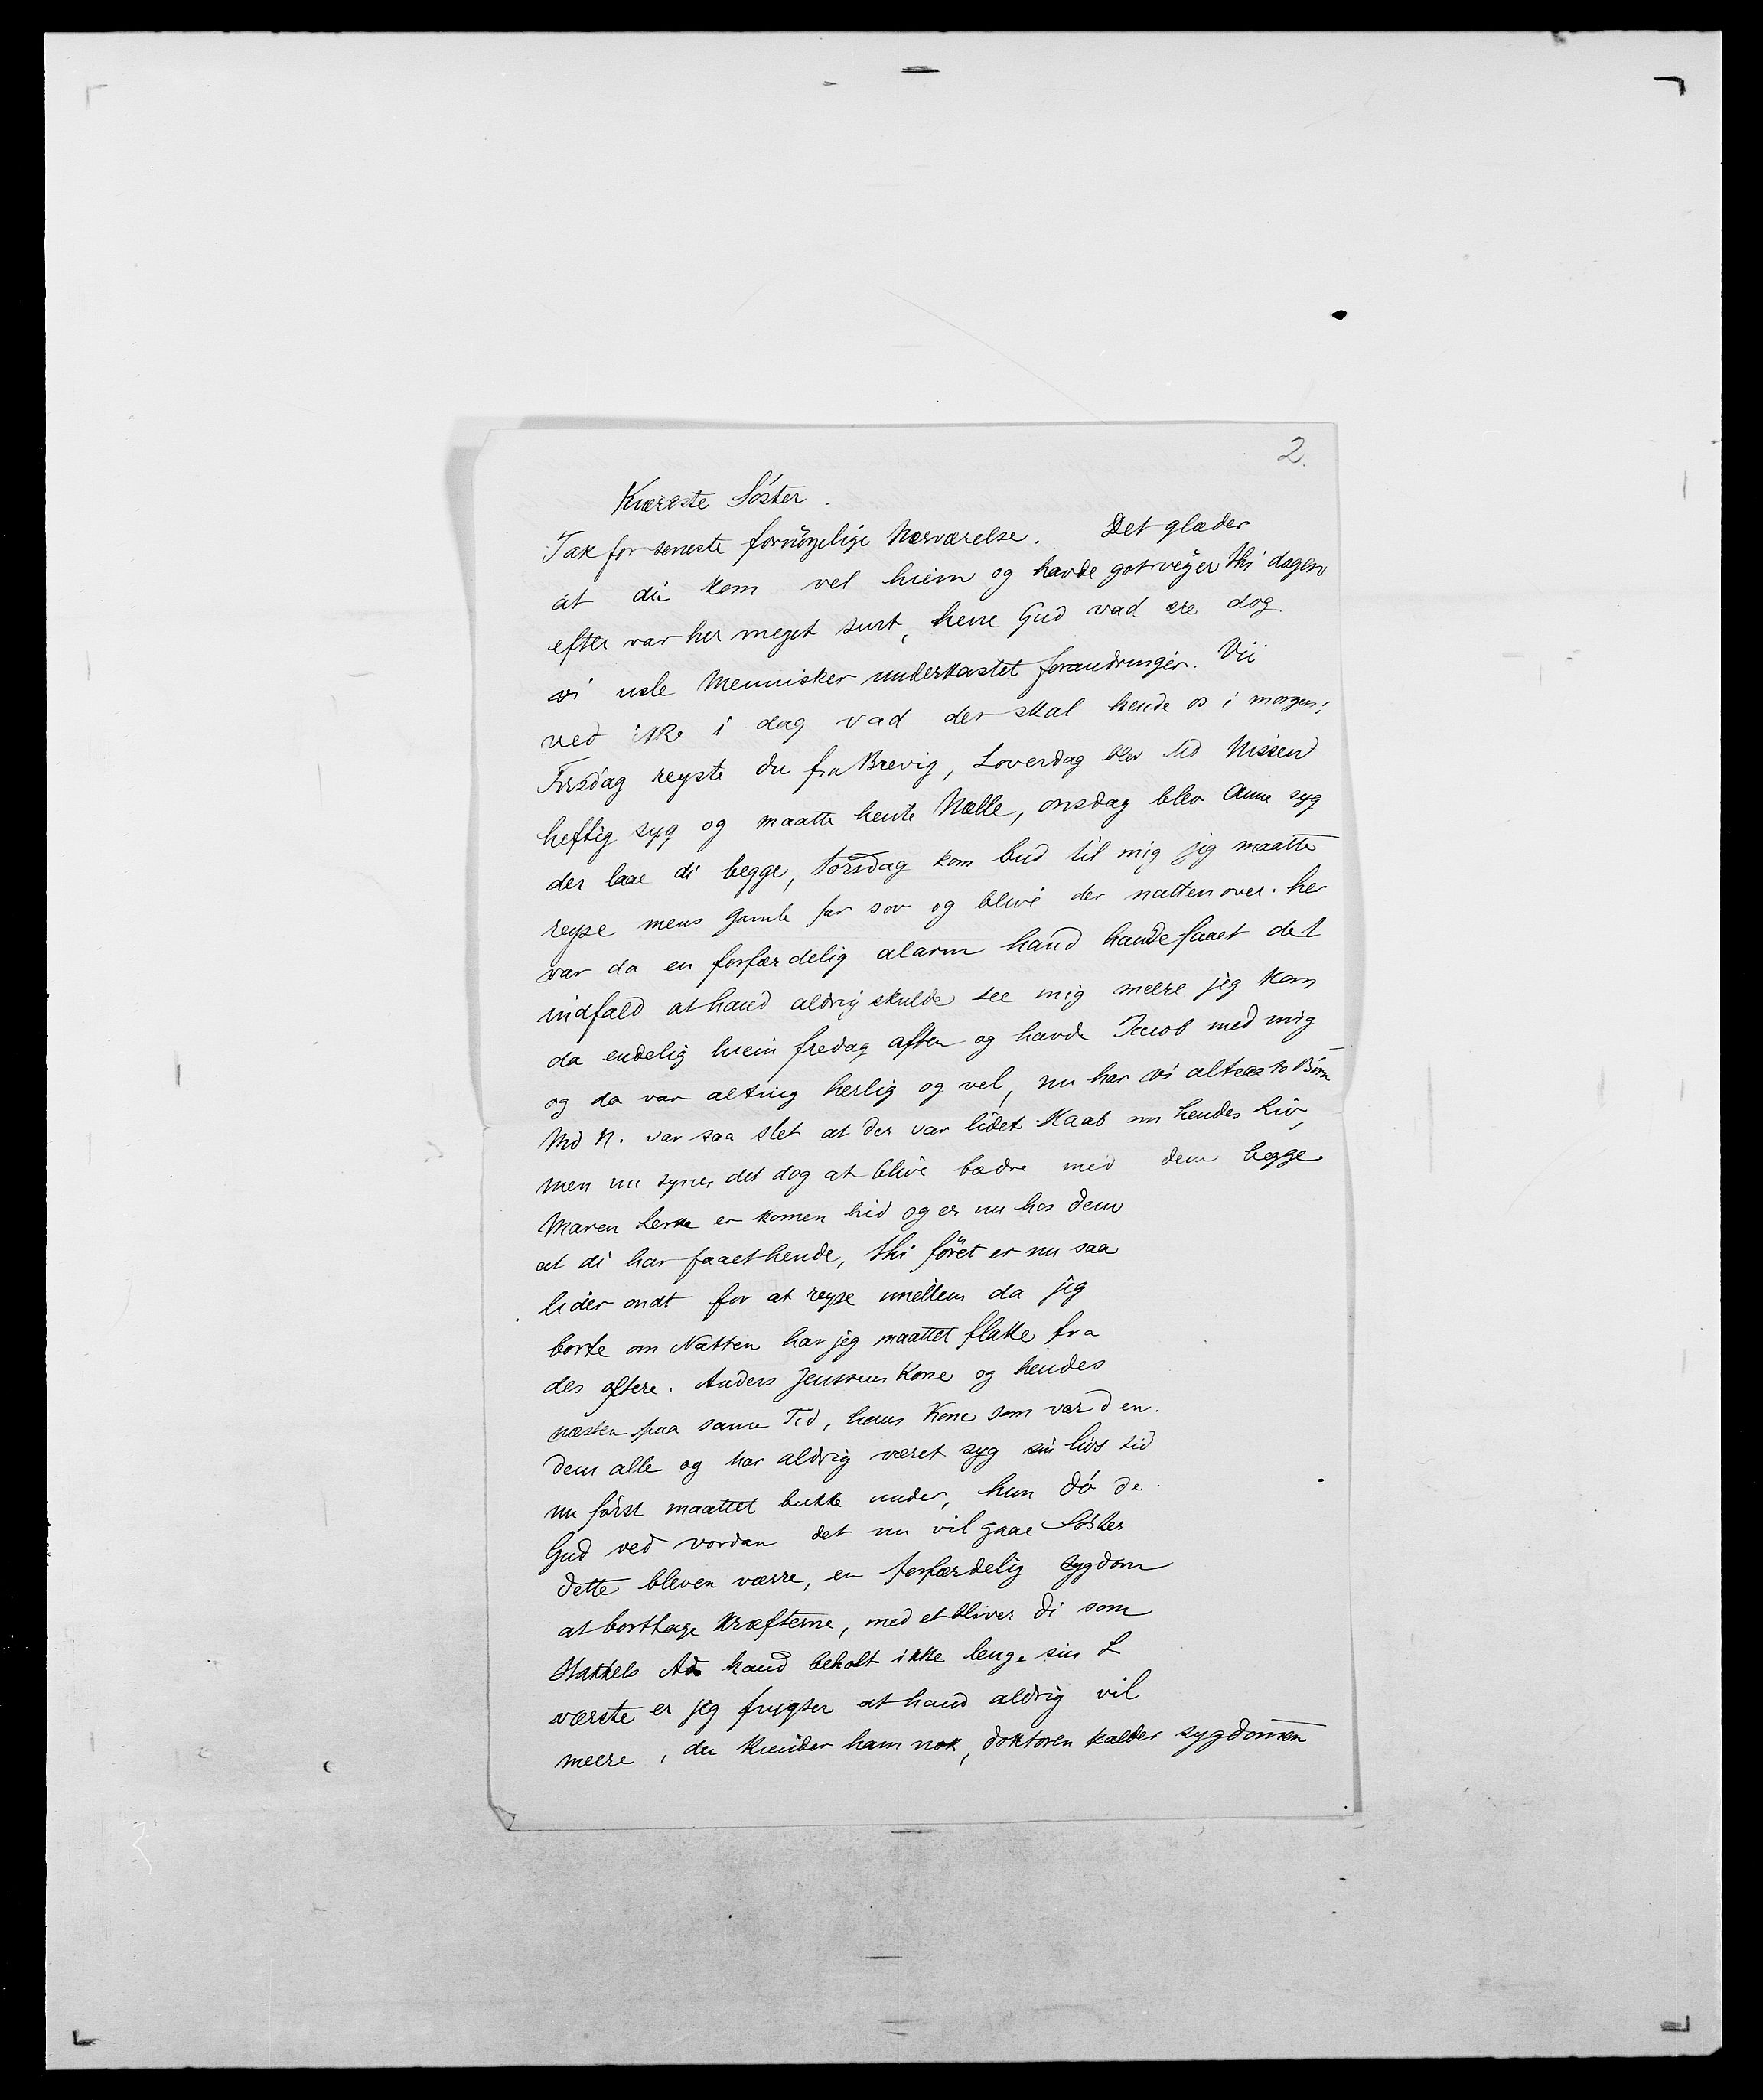 2.
Kiæreste Söster.
Tak for seneste fornöyelige Nærværelse. Det glæder
at du kom vel hiem og havde got veyer thi dagen
efter var her meget surt, herre Gud vad ere dog
vi usle Mennisker underkastet forandringer. Vii
ved ikke i dag vad der skal hende os i morgen;
Tirsdag reyste du fra Brevig, Löverdag blev Md Nissen
heftig syg og maatte hente Nælle, onsdag blev Anne syg
der laae di begge, torsdag kom bud til mig jeg maatte
reyse mens gamle far sov og blive der natten over. her
var da en forfærdelig alarm hand havde faaet det
indfald at hand aldrig skulde see mig meere jeg kom
da endelig hiem fredag aften og havde Jacob med mig
og da var alting herlig og vel, nu har vi altsaa to Börn
Md N. var saa slet at der var lidet Haab om hendes Liv,
men nu synes det dog at blive bædre med dem begge
Maren Lerke er komen hid og er nu hos dem
at di har faaet hende, thi föret er nu saa
lider ondt for at reyse imellem da jeg
borte om Natten har jeg maattet flakke fra
des oftere. Anders Jenssens Kone og hendes
næsten paa samme Tid, hans Kone som var den
dem alle og har aldrig været syg sin livs tid
nu först maattet bukke under, hun dö de
Gud ved vordan det nu vil gaae Söster
dette bleven værre, en forfærdelig sygdom
at borttage Kræfterne, med et bliver di som
Stakkels Ad hand beholt ikke lenge sin L
værste er jeg frygter at hand aldrig vil
meere, du kiender ham nok, doktoren kalder sygdommen